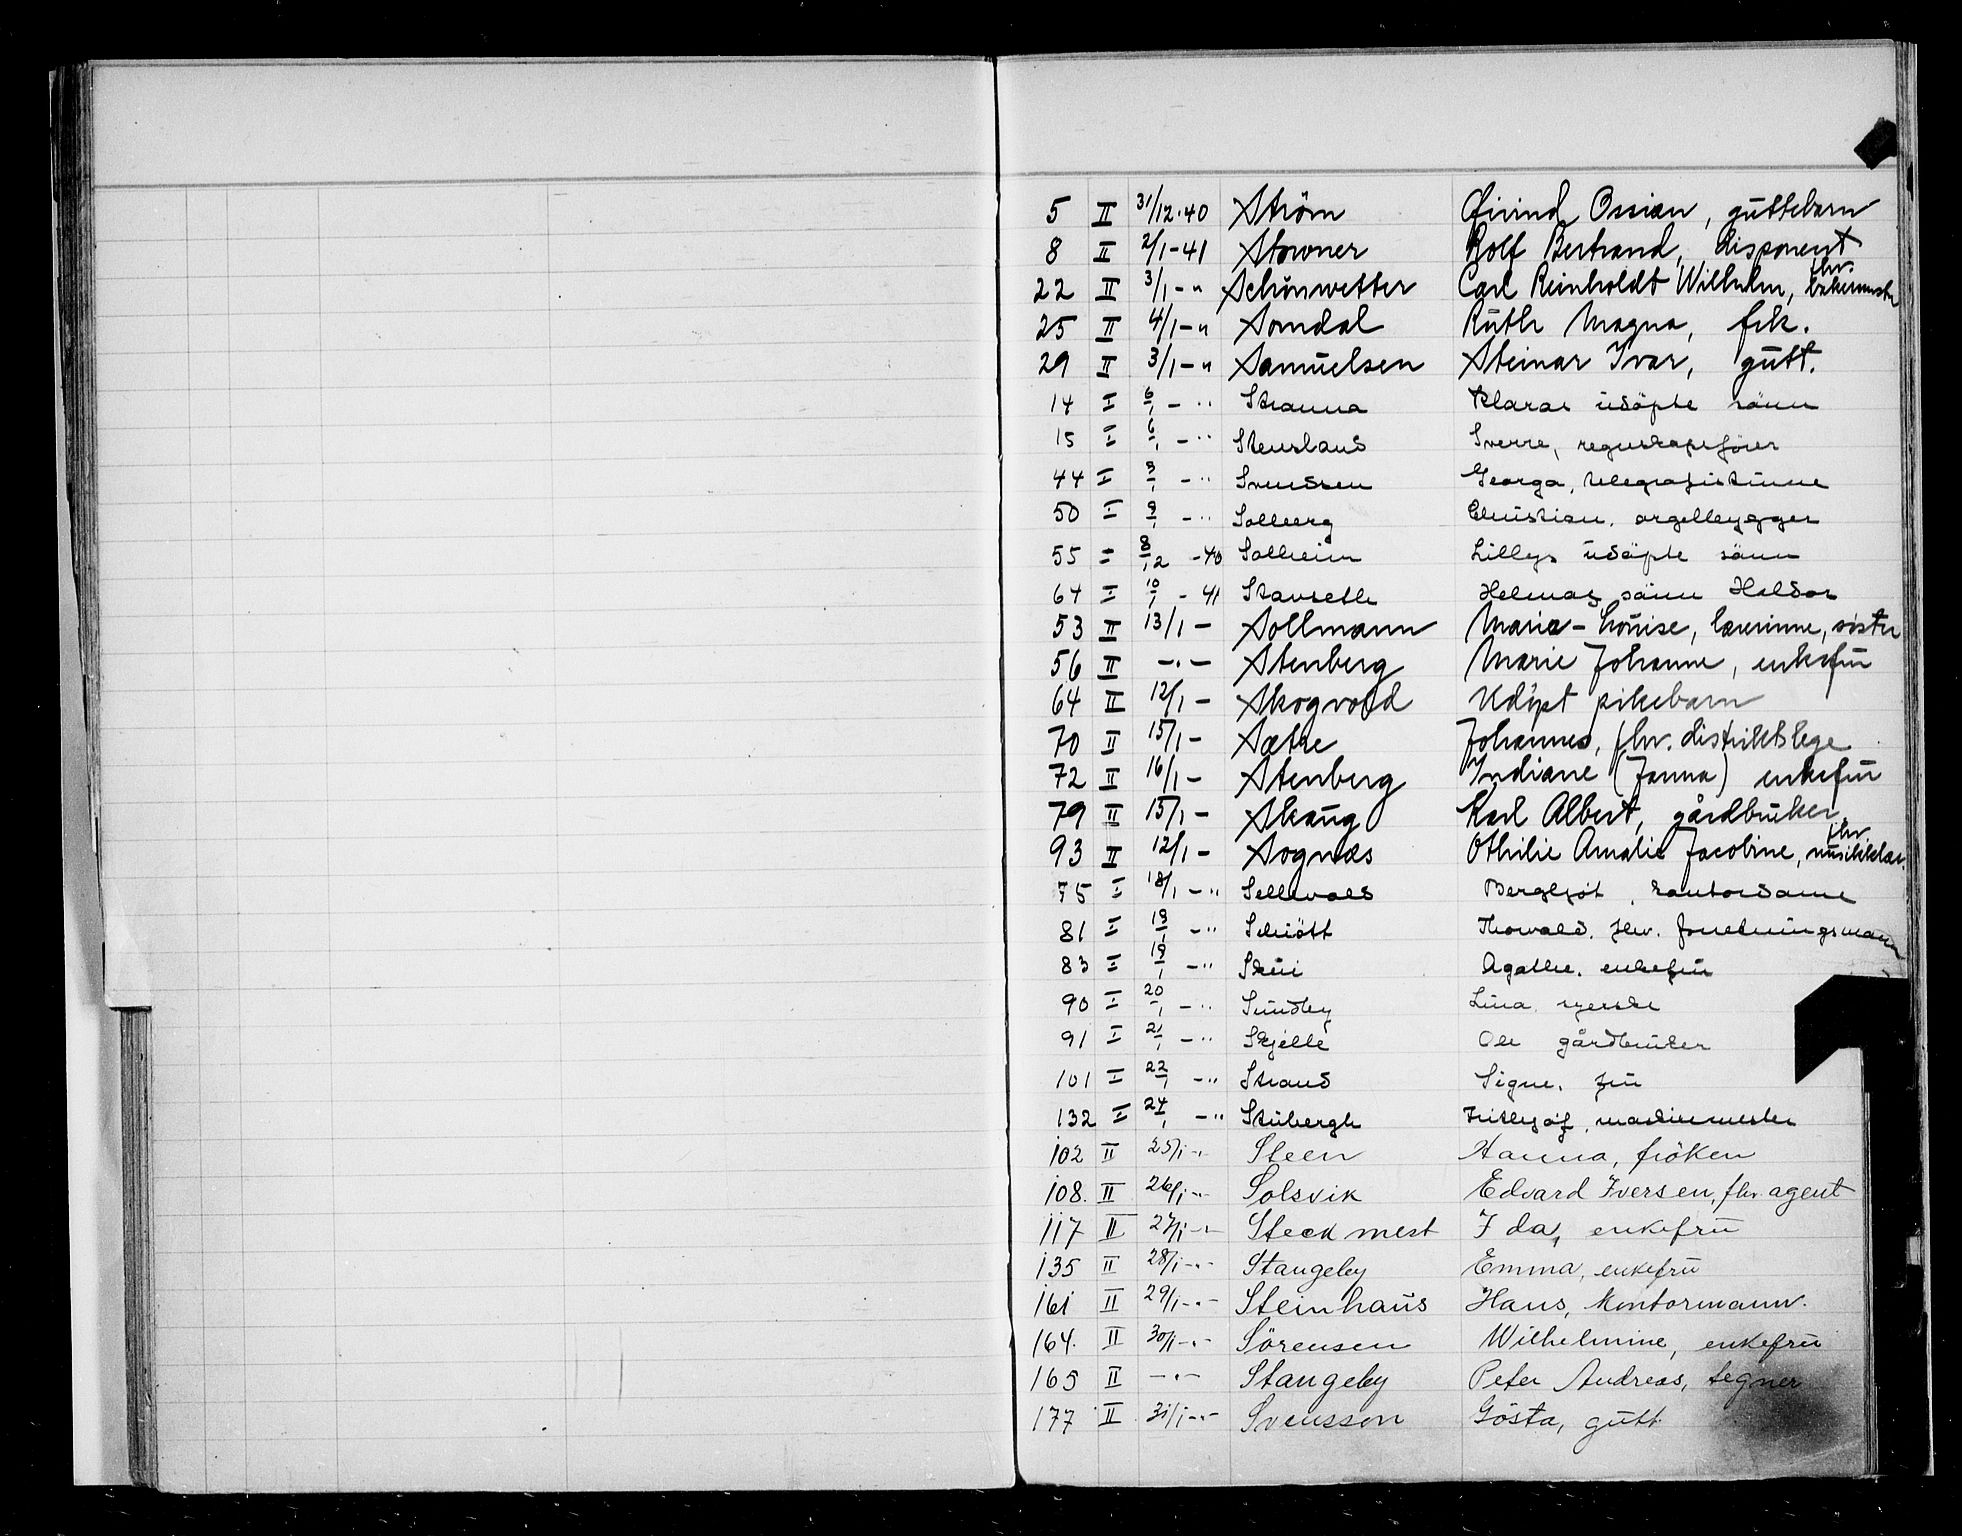 5 II 31/12-40 Ström Øivind Ossian, guttebarn
8 II 2/1-41 Stowner Rolf Bertrand, disponent
22 II 3/1-" Schönwetter Carl Reinholdt Wilhelm, fhv. bakermester
25 II 4/1-" Somdal Ruth Magna, frk.
29 II 3/1-" Samuelsen Steinar Ivar, gutt.
14 I 6/1 -" Stranna Klaras udöpte sönn
15 I 6/1 -" Stensland Sverre, regnskapsförer
44 I 3/1 -" Svendsen Georga, telegrafistinne
50 I 9/1 -" Solberg Christian, orgelbygger
55 I 8/12 -40 Solheim Lillys udöpte sönn
64 I 10/1 - 41 Stavseth Helmas sönn Haldor
53 II 13/1 - Sollmann Maria-Louise, lærerinne, söster
56 II -"- Stenberg Marie Johanne, enkefru
64 II 12/1 - Skogvold Udöpt pikebarn
70 II 15/1 - Sætre Johannes, fhv. distriktslege
72 II 16/1 - Stenberg Indiane (Janna) enkefru
79 II 15/1 - Skaug Karl Albert, gårdbruker
93 II 12/1 - Sognæs Othilie Amalie Jacobine, fhv. musikklær.
75 I 18/1 -" Sellevold Bergljot, kontordame
81 I 19/1 -" Schiött Thorvald, fhv. forretningsmann
83 I 19/1 -" Skui Agathe, enkefru
90 I 20/1 -" Sundby Lina, syerske
91 I 21/1 -" Skjelle Ole gårdbruker
101 I 22/1 -" Strand Signe, fru
132 I 24/1 -" Stubergh Frithjof, maskinmester
102 II 25/1 -"- Steen Hanna, fröken
108. II 26/1 -"- Solsvik Edvard Iversen, fhv. agent
117 II 27/1 -"- Steckmest Ida, enkefru
135 II 28/1 -"- Stangeby Emma, enkefru
161 II 29/1 -"- Steinhaus Hans, kontormann.
164. II 30/1 -"- Sörensen Wilhelmine, enkefru
165 II -"- Stangeby Peter Andreas, tegner
177 II 31/1 -"- Svensson Gösta, gutt